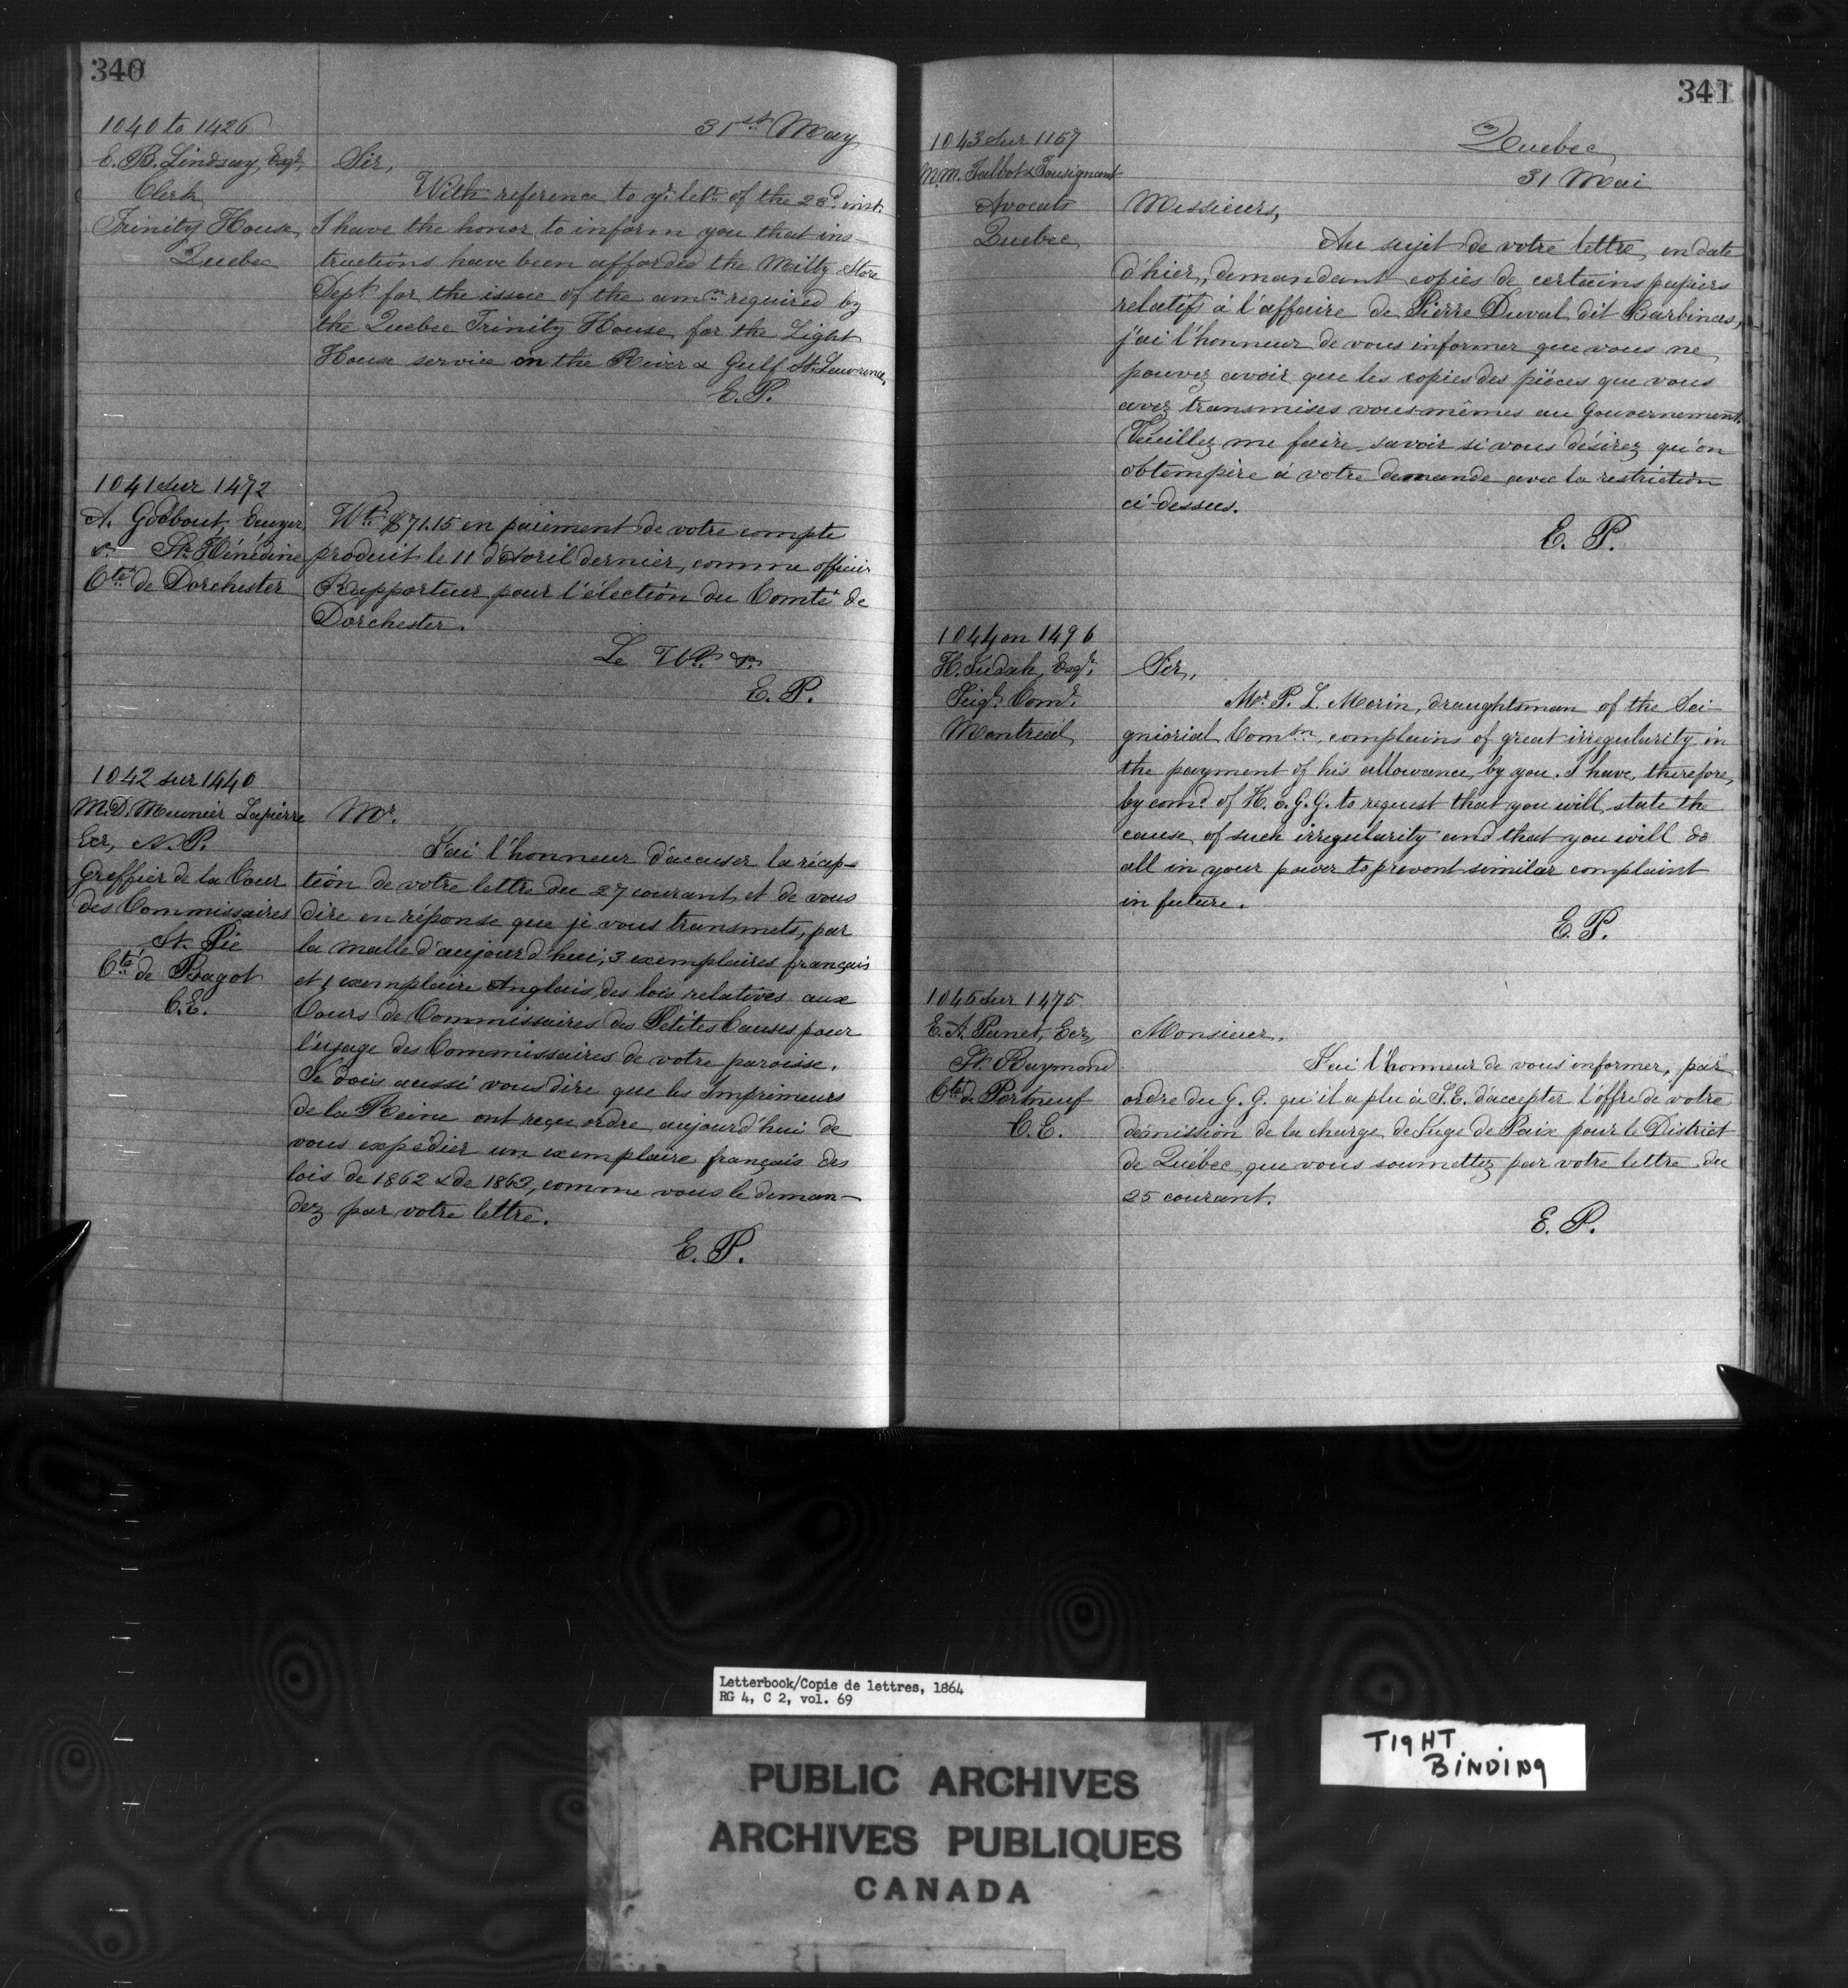 340
1040 to 1426
31st May
E. B. Lindsay, Esqr.
Clerk
Trinity House,
Quebec
Sir,
With reference to yr. letr. of the 28d. inst.
I have the honor to inform you that ins-
tructions have been afforded the Milty Store
Dept. for the issue of the amn. required by
the Quebec Trinity House, for the Light
House service on the River & Gulf St. Lawrence,
E. P.
1041 sur 1472
A. Godbout, Ecuyer,
Ste. Hénédine
Cté. de Dorchester
Wt. $71.15 en paiement de votre compte
produit le 11 d'Avril dernier, comme officier
Rapporteur pour l'élection du Comté de
Dorchester.
Le Wt.
E. P.
1042 sur 1440
M. D. Meunier Lapierre
Ecr, N. P.
Greffier de la Cour
des Commissaires
St. Pie
Cté. de Bagot
C. E.
Mr.
J'ai l'honneur d'accuser la récep-
tion de votre lettre du 27 courant, et de vous
dire en réponse que je vous transmets, par
la malle d'aujourd'hui, 3 exemplaires français
et 1 exemplaire Anglais, des lois relatives aux
Cours de Commissaires des Petites Causes pour
l'usage des Commissaires de votre paroisse.
Je dois aussi vous dire que les Imprimeurs
de la Reine ont reçu ordre aujourd'hui de
vous expédier un exemplaire français des
lois de 1862 & de 1863, comme vous le deman-
dez par votre lettre.
E. P.
341
1043 sur 1157
M.M. Talbot & Tousignant
Avocats
Quebec
Quebec
31 Mai
Messieurs,
Au sujet de votre lettre, en date
d'hier, demandant copies de certains papiers
relatifs à l'affaire de Pierre Duval dit Barbinas,
j'ai l'honneur de vous informer que vous ne
pouvez avoir que les copies des pièces que vous
avez transmises vous-mêmes au Gouvernement.
Veuillez me faire savoir si vous désirez qu'on
obtempère à votre demande avec la restriction
ci-dessus.
E. P.
1044 on 1496
H. Judah, Esqr.
Seigl. Comr.
Montreal
Sir,
Mr. P. L. Morin, draughtsman of the Sei-
gniorial Comsn, complains of great irregularity in
the payment of his allowance, by you. I have, therefore,
by comd. of H. E. G. G. to request that you will state the
cause of such irregularity and that you will do
all in your power to prevent similar complaint
in future.
E. P.
1045 sur 1475
E. A. Panet, Ecr,
St. Raymond
Cté. de Portneuf
C. E.
Monsieur,
J'ai l'honneur de vous informer, par
ordre du G. G. qu'il a plu à S. E. d'accepter l'offre de votre
démission de la charge de Juge de Paix pour le District
de Québec, que vous soumettez par votre lettre du
25 courant.
E. P.
Letterbook/Copie de lettres, 1864
RG 4, C 2, vol. 69
TIGHT
BINDING
PUBLIC ARCHIVES
ARCHIVES PUBLIQUES
CANADA